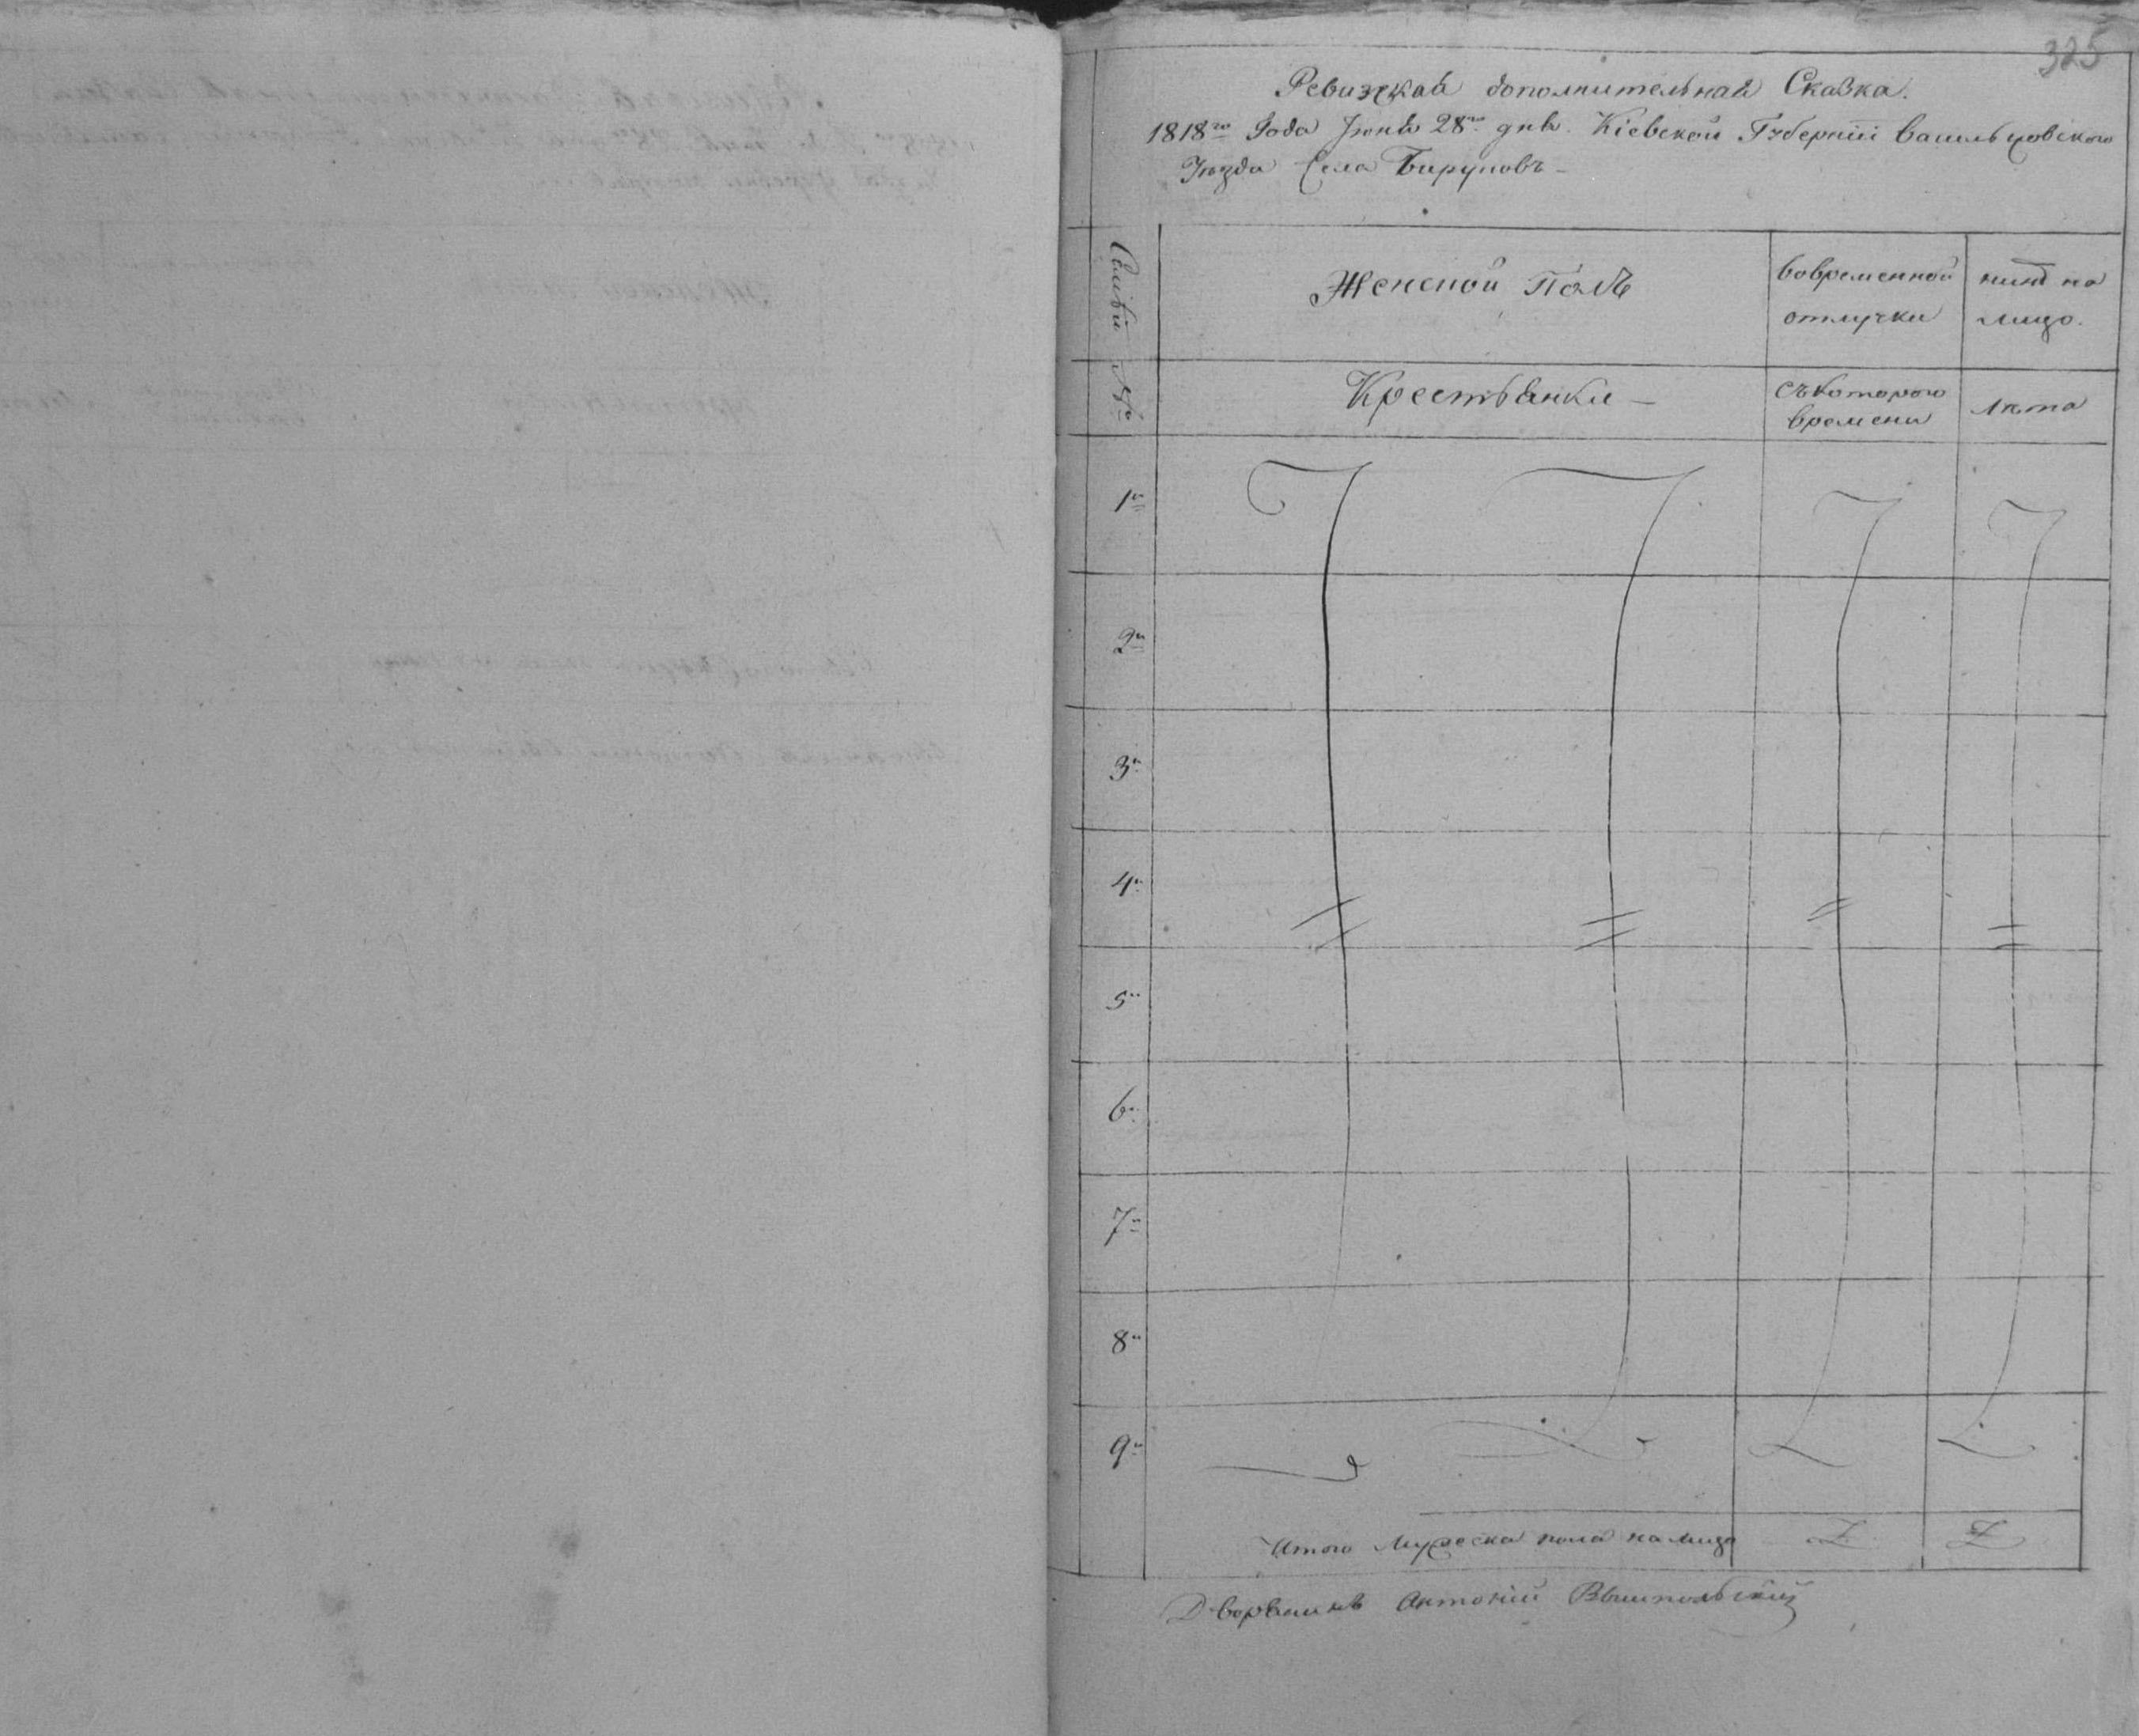 325
Ревизская дополнительная Сказка.
1818го Года Іюня 28го дня. Кіевской Губерніи Васильковского
Уѣзда Села Бируковъ
Семьи №
Женской Полъ
вовременной отлучки
нынѣ на лицо.
Крестьянки
съкоторого времени
лѣта
1я
2я
3я
4я
5я
6я
7я
8я
9я
Итого Мужеска пола на лицо
Дворянинъ Антоній